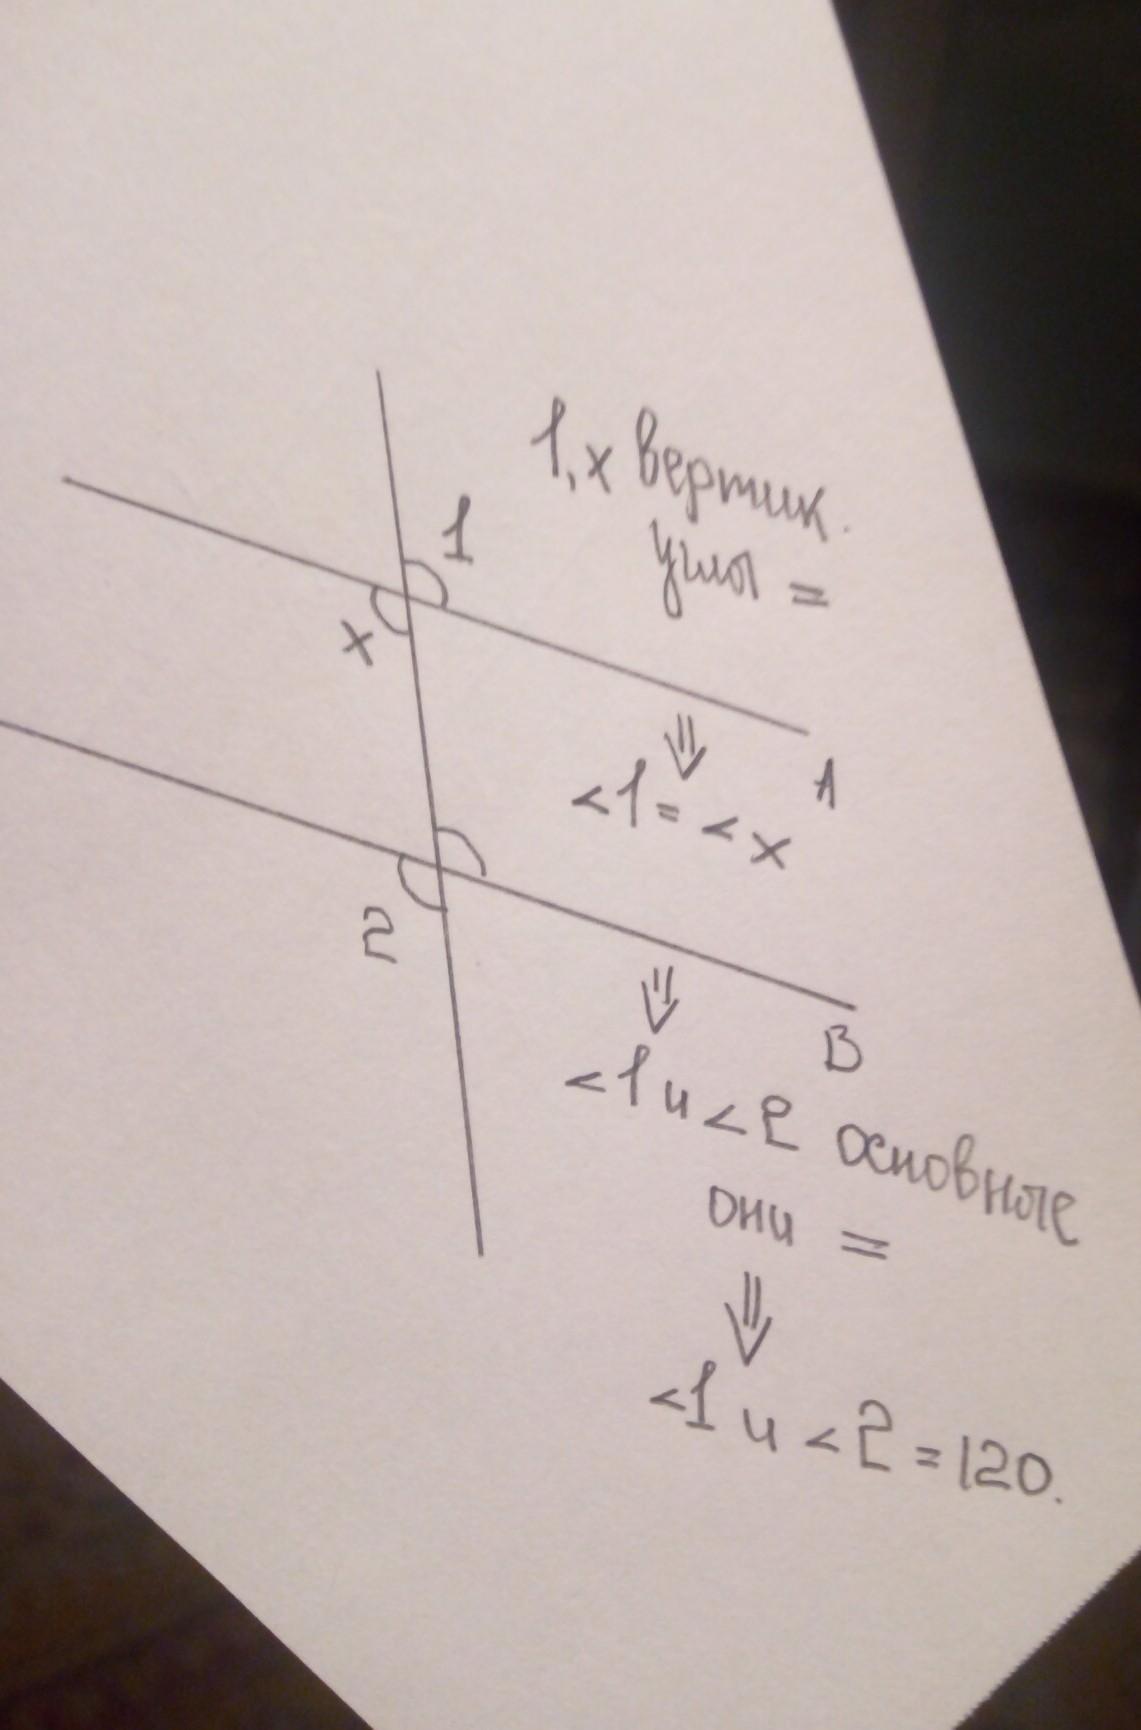 1, x вертик.
углы =
1
x
A
<1 = <x
2
B
<1 и <2 основные
они =
<1 и <2 = 120.